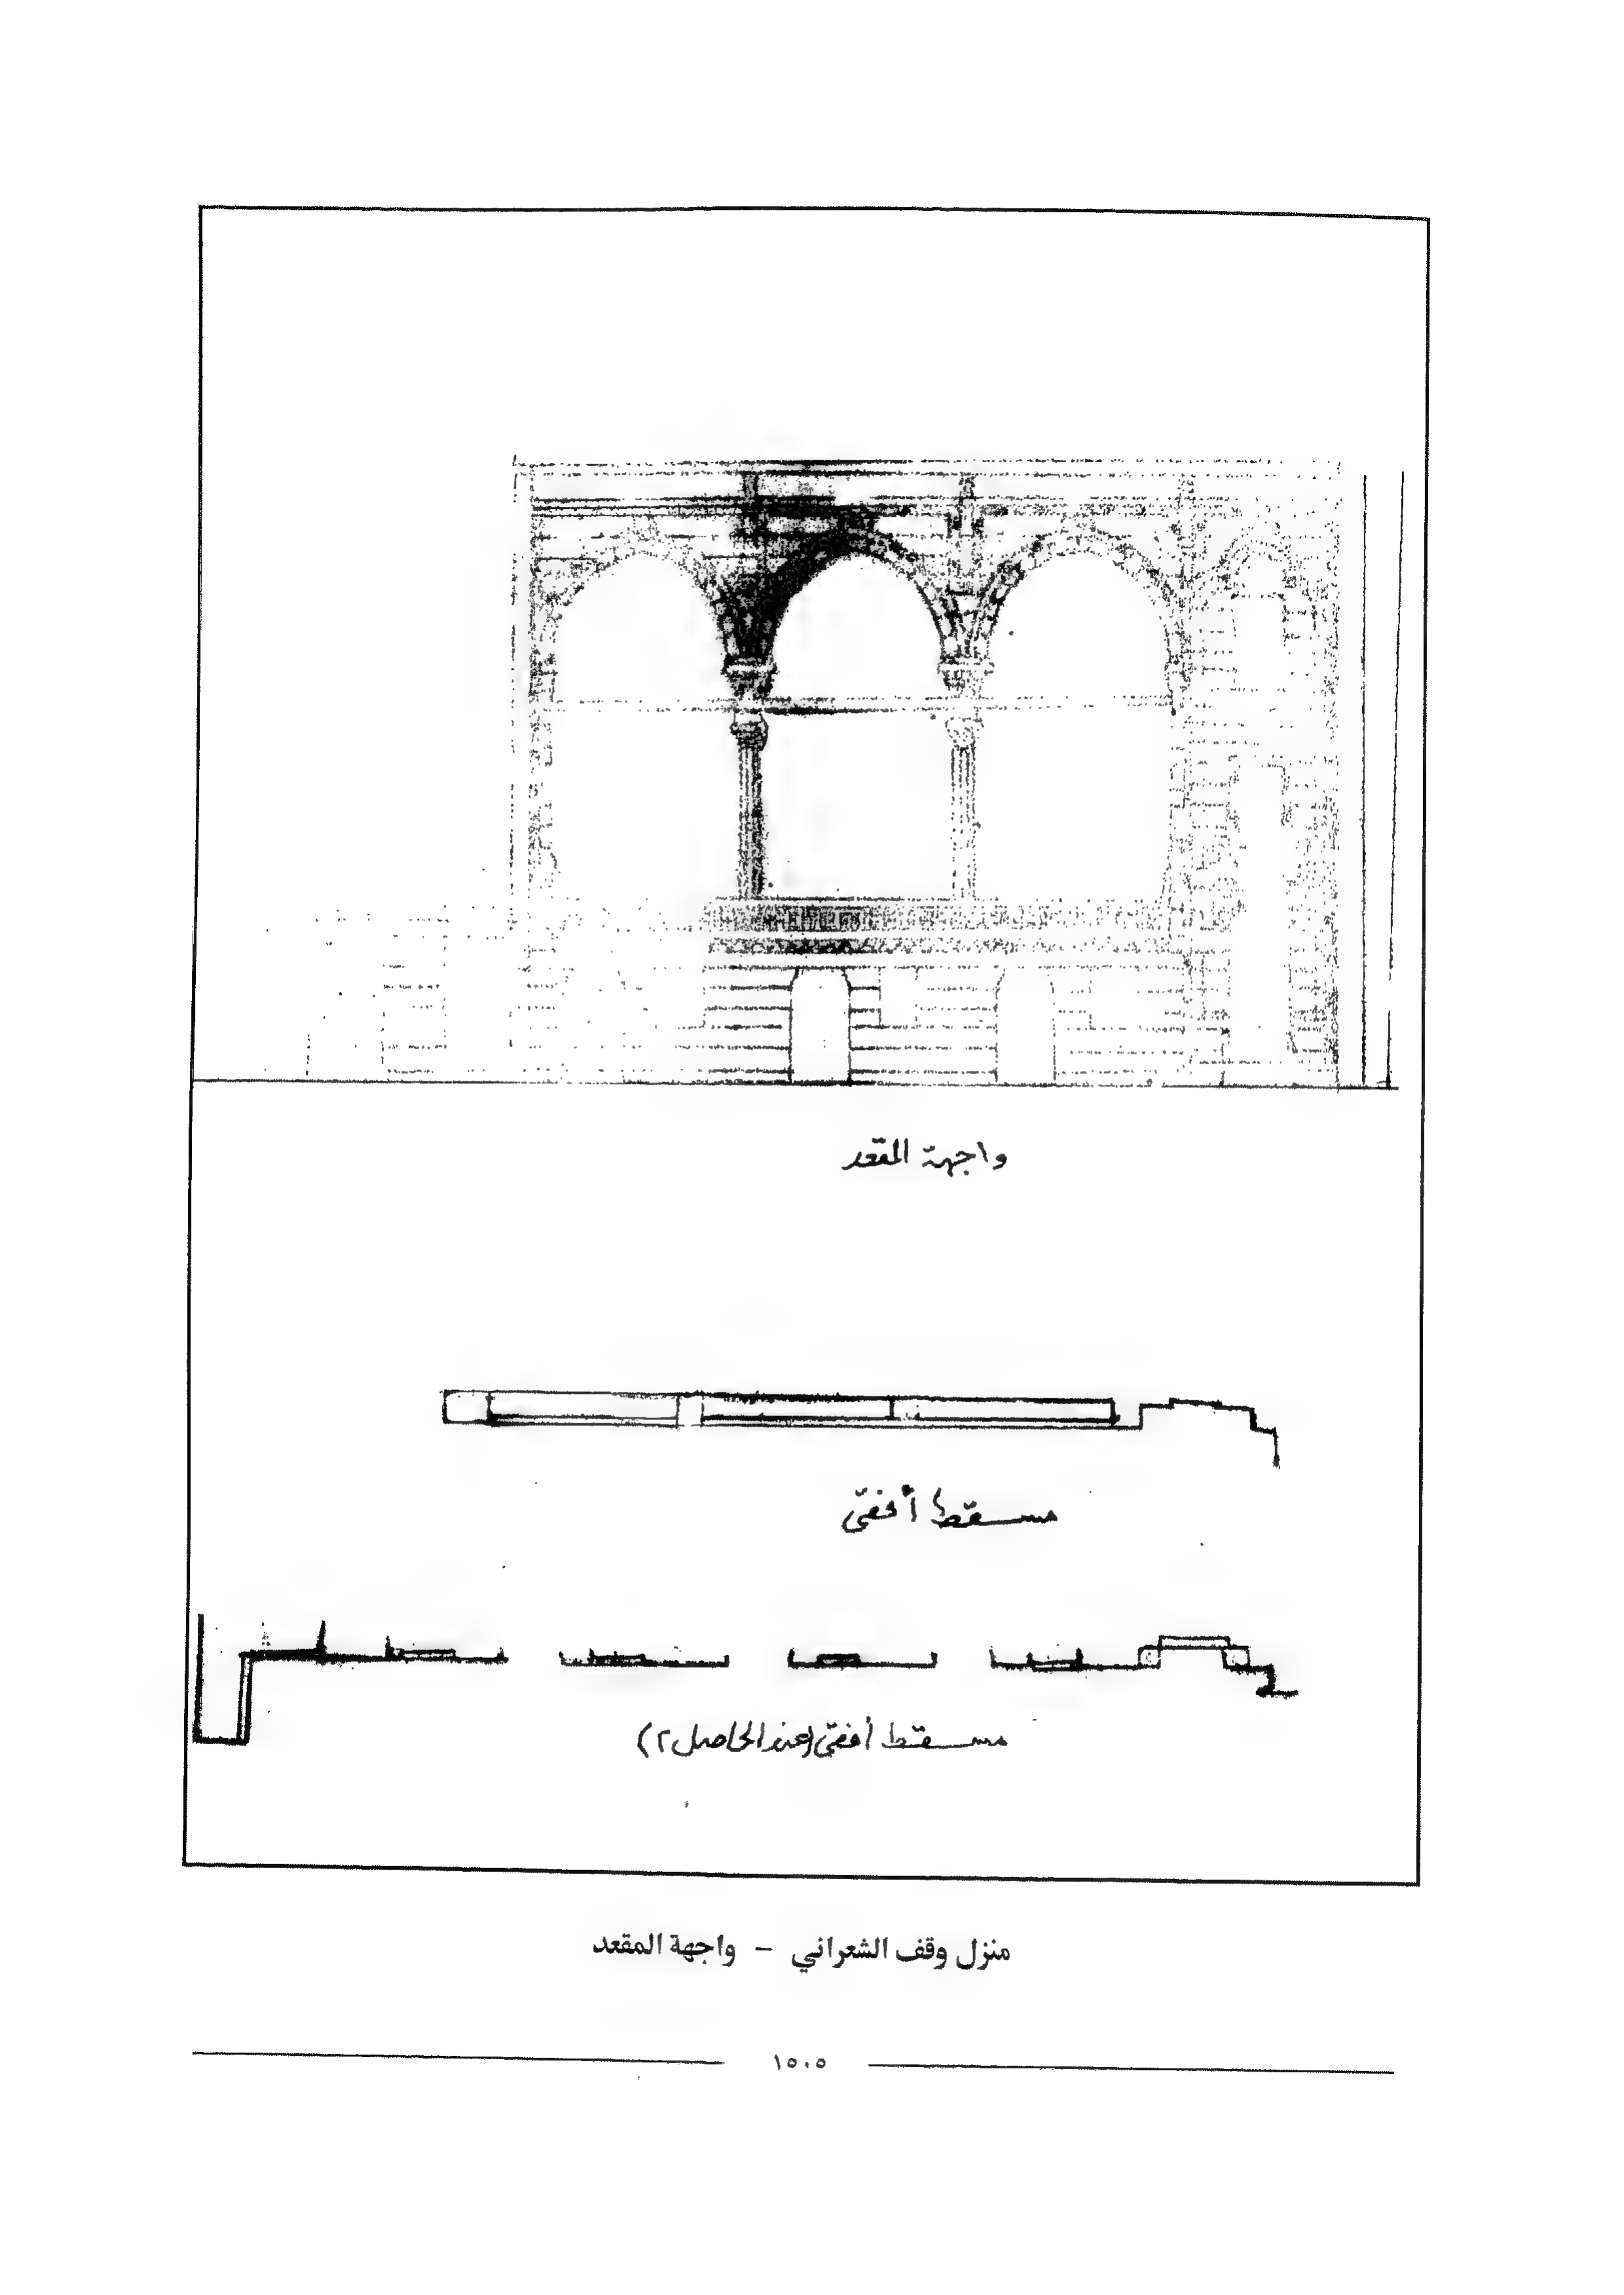 واجهة المقعد
مسقط أفقى
مسقط أفقى (عند الحاصل ٢)
منزل وقف الشعراني – واجهة المقعد
١٥٠٥